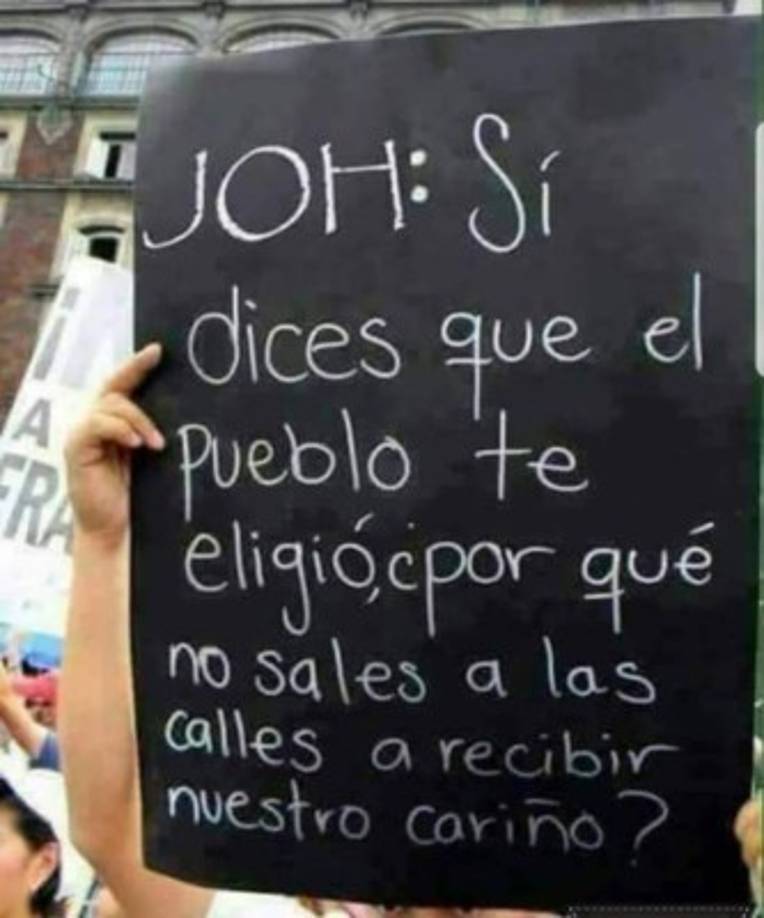 JOH: Sí
dices que el
pueblo te
eligió,¿por qué
no sales a las
calles a recibir
nuestro cariño?
A
FRA